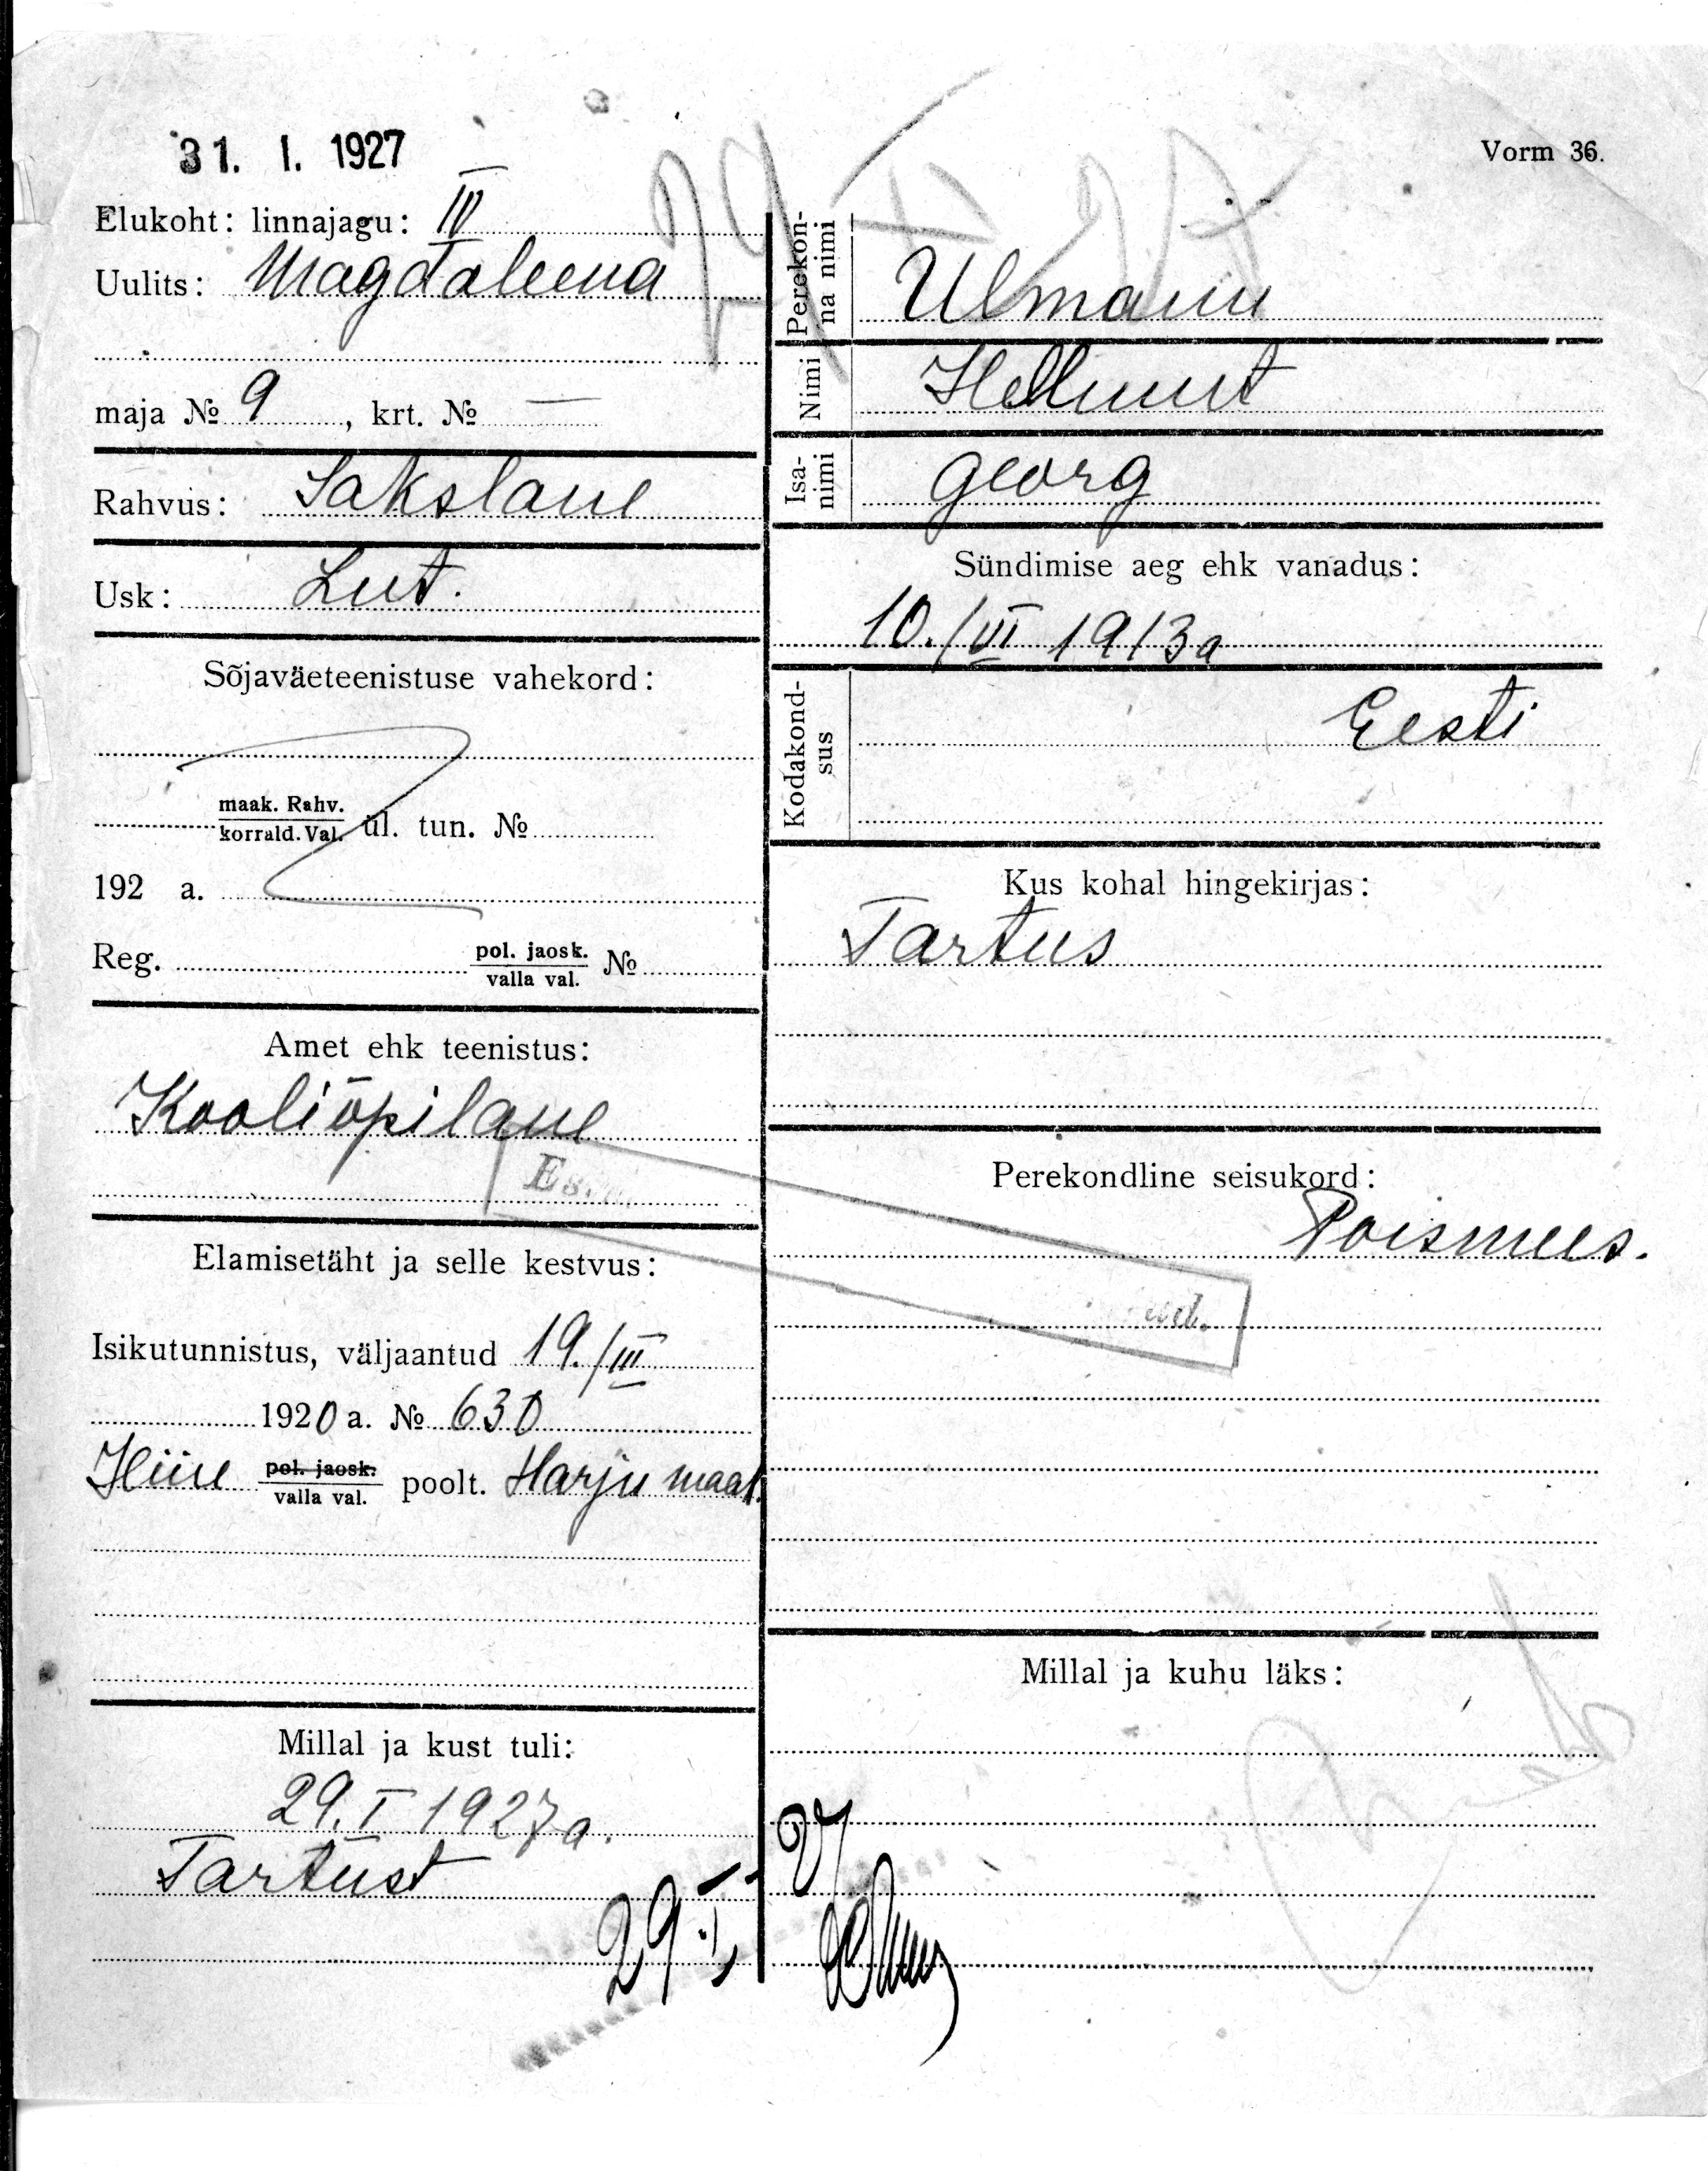 31. I. 1927
Vorm 36.
Elukoht: linnajagu: IV
Uulits: Magdaleena
maja № 9, krt. № —
Rahvus: Sakslane
Usk: Lut.
Sõjaväeteenistuse vahekord:
maak. Rahv.
korrald. Val. ül. tun. №
192 a.
Reg. pol. jaosk. №
valla val.
Amet ehk teenistus:
Kooliõpilane
Elamisetäht ja selle kestvus:
Isikutunnistus, väljaantud 19./III
1920 a. № 630
Hiiu pol. jaosk. poolt. Harju maal.
valla val.
Millal ja kust tuli:
29. I 1927 a.
Tartust
29. I
Perekon-
na nimi
Ulmann
Nimi
Hellmut
Isa-
nimi
Georg
Sündimise aeg ehk vanadus:
10./VI 1913 a
Kodakond-
sus
Eesti
Kus kohal hingekirjas:
Tartus
Perekondline seisukord:
Poismees.
Millal ja kuhu läks:
27